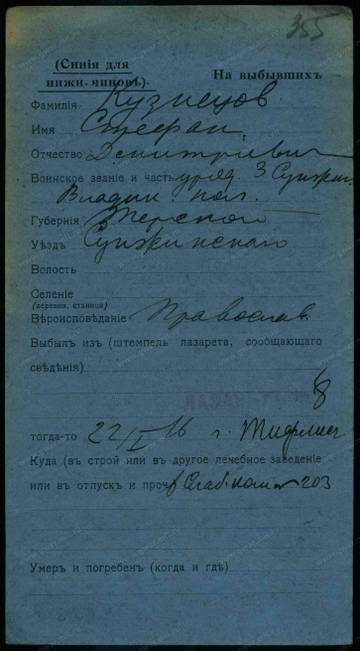 355
(Синія для
нижн. чиновъ).
На выбывшихъ
Фамилія Кузнецов
Имя Стефан
Отчество Демитриевич
Воинское званіе и часть уряд. 3 Сунжен
Владик. пол.
Губернія Терской
Уѣздъ Сунжинскаго
Волость
Селеніе
(деревня, станица)
Вѣроисповѣданіе Православ
Выбылъ изъ (штемпель лазарета, сообщающаго
свѣдѣнія)
тогда-то 22/I 16 г. Тифлис
Куда (въ строй или въ другое лечебное заведеніе
или въ отпускъ и проч.) Слаб. ком 203
Умеръ и погребенъ (когда и гдѣ)